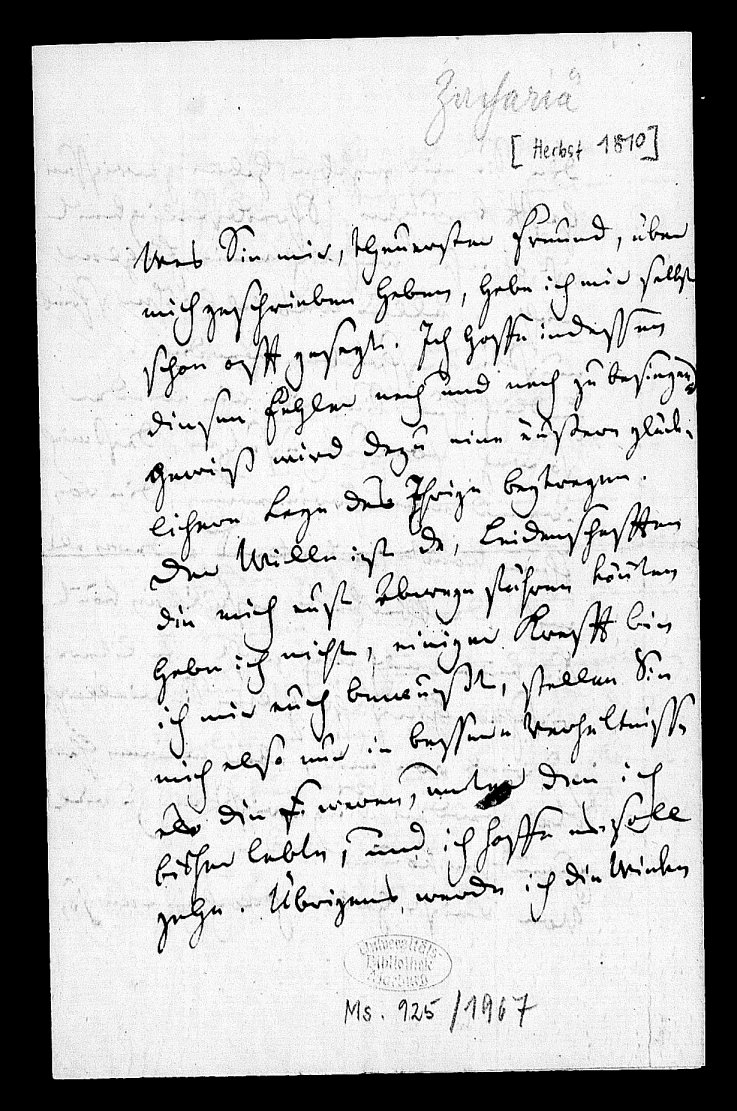 Zachariä
[Herbst 1810]
Was Sie mir, theuerster Freund, über
mich geschrieben haben, habe ich mir selbst
schon oft gesagt. Ich hoffe indessen
diesen Fehler nach und nach zu besiegen,
gewiß wird dazu eine äußere glück-
lichere Lage das Ihrige beytragen.
Der Wille ist da, Leidenschafften
die mich auf Abwege führen könten
habe ich nicht, einiger Krafft bin
ich mir auch bewußt, stellen Sie
mich also nur in bessere Verhältnisse
als die waren, unter den ich
bisher lebte, und ich hoffe es solle
gehn. Übrigens werde ich die Winken
Universitäts-
Bibliothek
Marburg
Ms. 925/1967